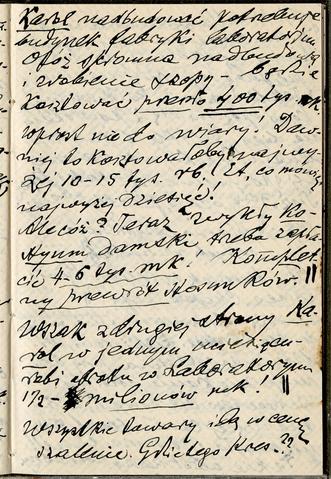 Karol nadbudować potrzebuje
budynek fabryki laboratorium
Otóż ogromna nadbudówka
i zrobienie szopy – będzie
kosztować przeszło 400 tys. mk
wprost nie do wiary! Daw-
niej to kosztowałoby najwy-
żej 10–15 tys. rb.! Et, co mówię
najwyżej dziesięć!
Ale cóż? Teraz zwykły ko-
styum damski trzeba zapła-
cić 4–6 tys. mk! Komplet-
ny przewrót stosunków!!
Wszak z drugiej strony Ka-
rol w jednym miesiącu
robi obrotu w Laboratoryum
1½– milionów mk!!
Wszystkie towary idą w cenę
szalenie. Gdzież tego kres..??